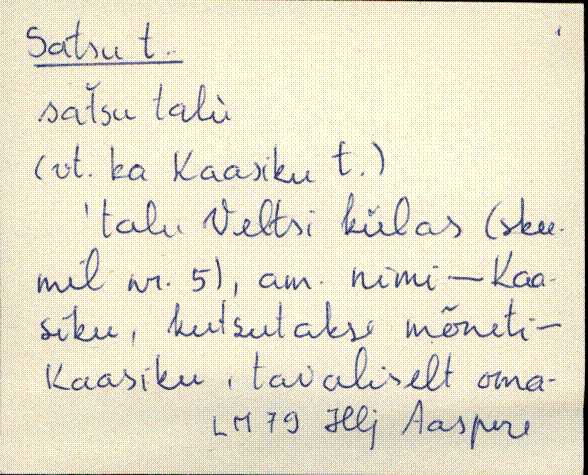 Satsu t.
sat̆su talù
(vt. ka Kaasiku t.)
'talu Veltsi külas (sku.
mil nr. 5), am. nimi — Kaa-
siku, kutsutakse mõneti —
Kaasiku, tavaliselt oma-
LM 79 Hlj Aaspere